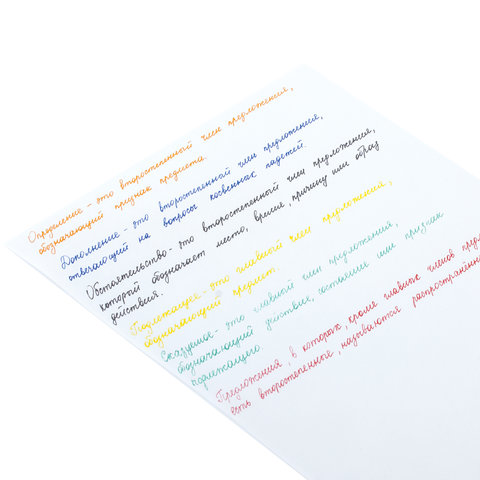 Определение - это второстепенный член предложения,
обозначающий признак предмета.
Дополнение - это второстепенный член предложения,
отвечающий на вопросы косвенных падежей.
Обстоятельство - это второстепенный член предложения,
который обозначает место, время, причину или образ
действия.
Подлежащее - это главный член предложения,
обозначающий предмет.
Сказуемое - это главный член предложения,
обозначающий действие, состояние или признак
подлежащего.
Предложения, в которых, кроме главных членов
есть второстепенные, называются